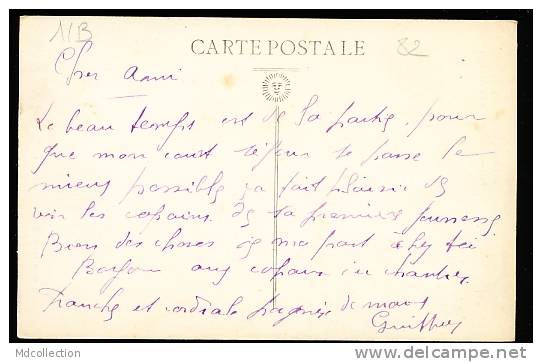 11B
CARTE POSTALE
82
Cher ami
Le beau temps est de la partie, pour
que mon court séjour se passe le
mieux possible, ça fait plaisir de
voir les copains de sa première jeunesse
Bien des choses de ma part à chez toi
Bonjour aux copains du chantier
Franche et cordiale poignée de mains
Mdcollection
http://www.delcampe.net